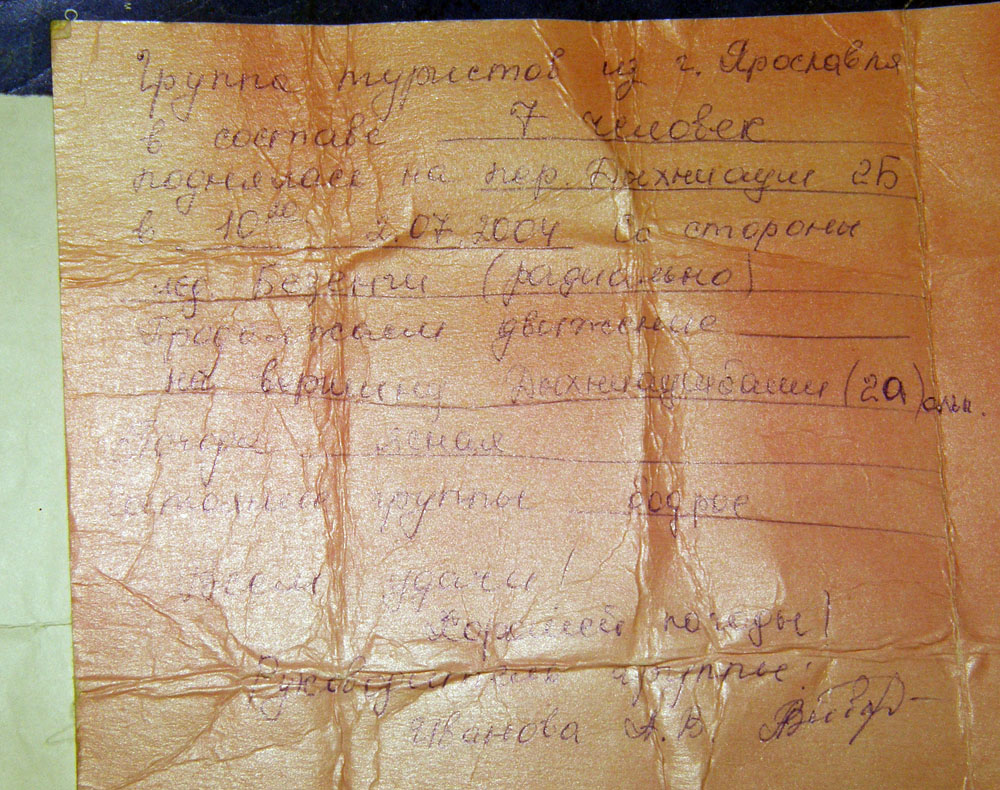 Группа туристов из г. Ярославля
в составе 7 человек
поднялась на пер. Дыхниауш 2Б
в 10 00 2.07.2004 Со стороны
лед. Безенги (радиально)
Продолжаем движение
на вершину Дыхниаушбаши (2а) альп.
Погода ясная
Состояние группы бодрое
Всем удачи!
Хорошей погоды!
Руководитель группы:
Иванова А.В